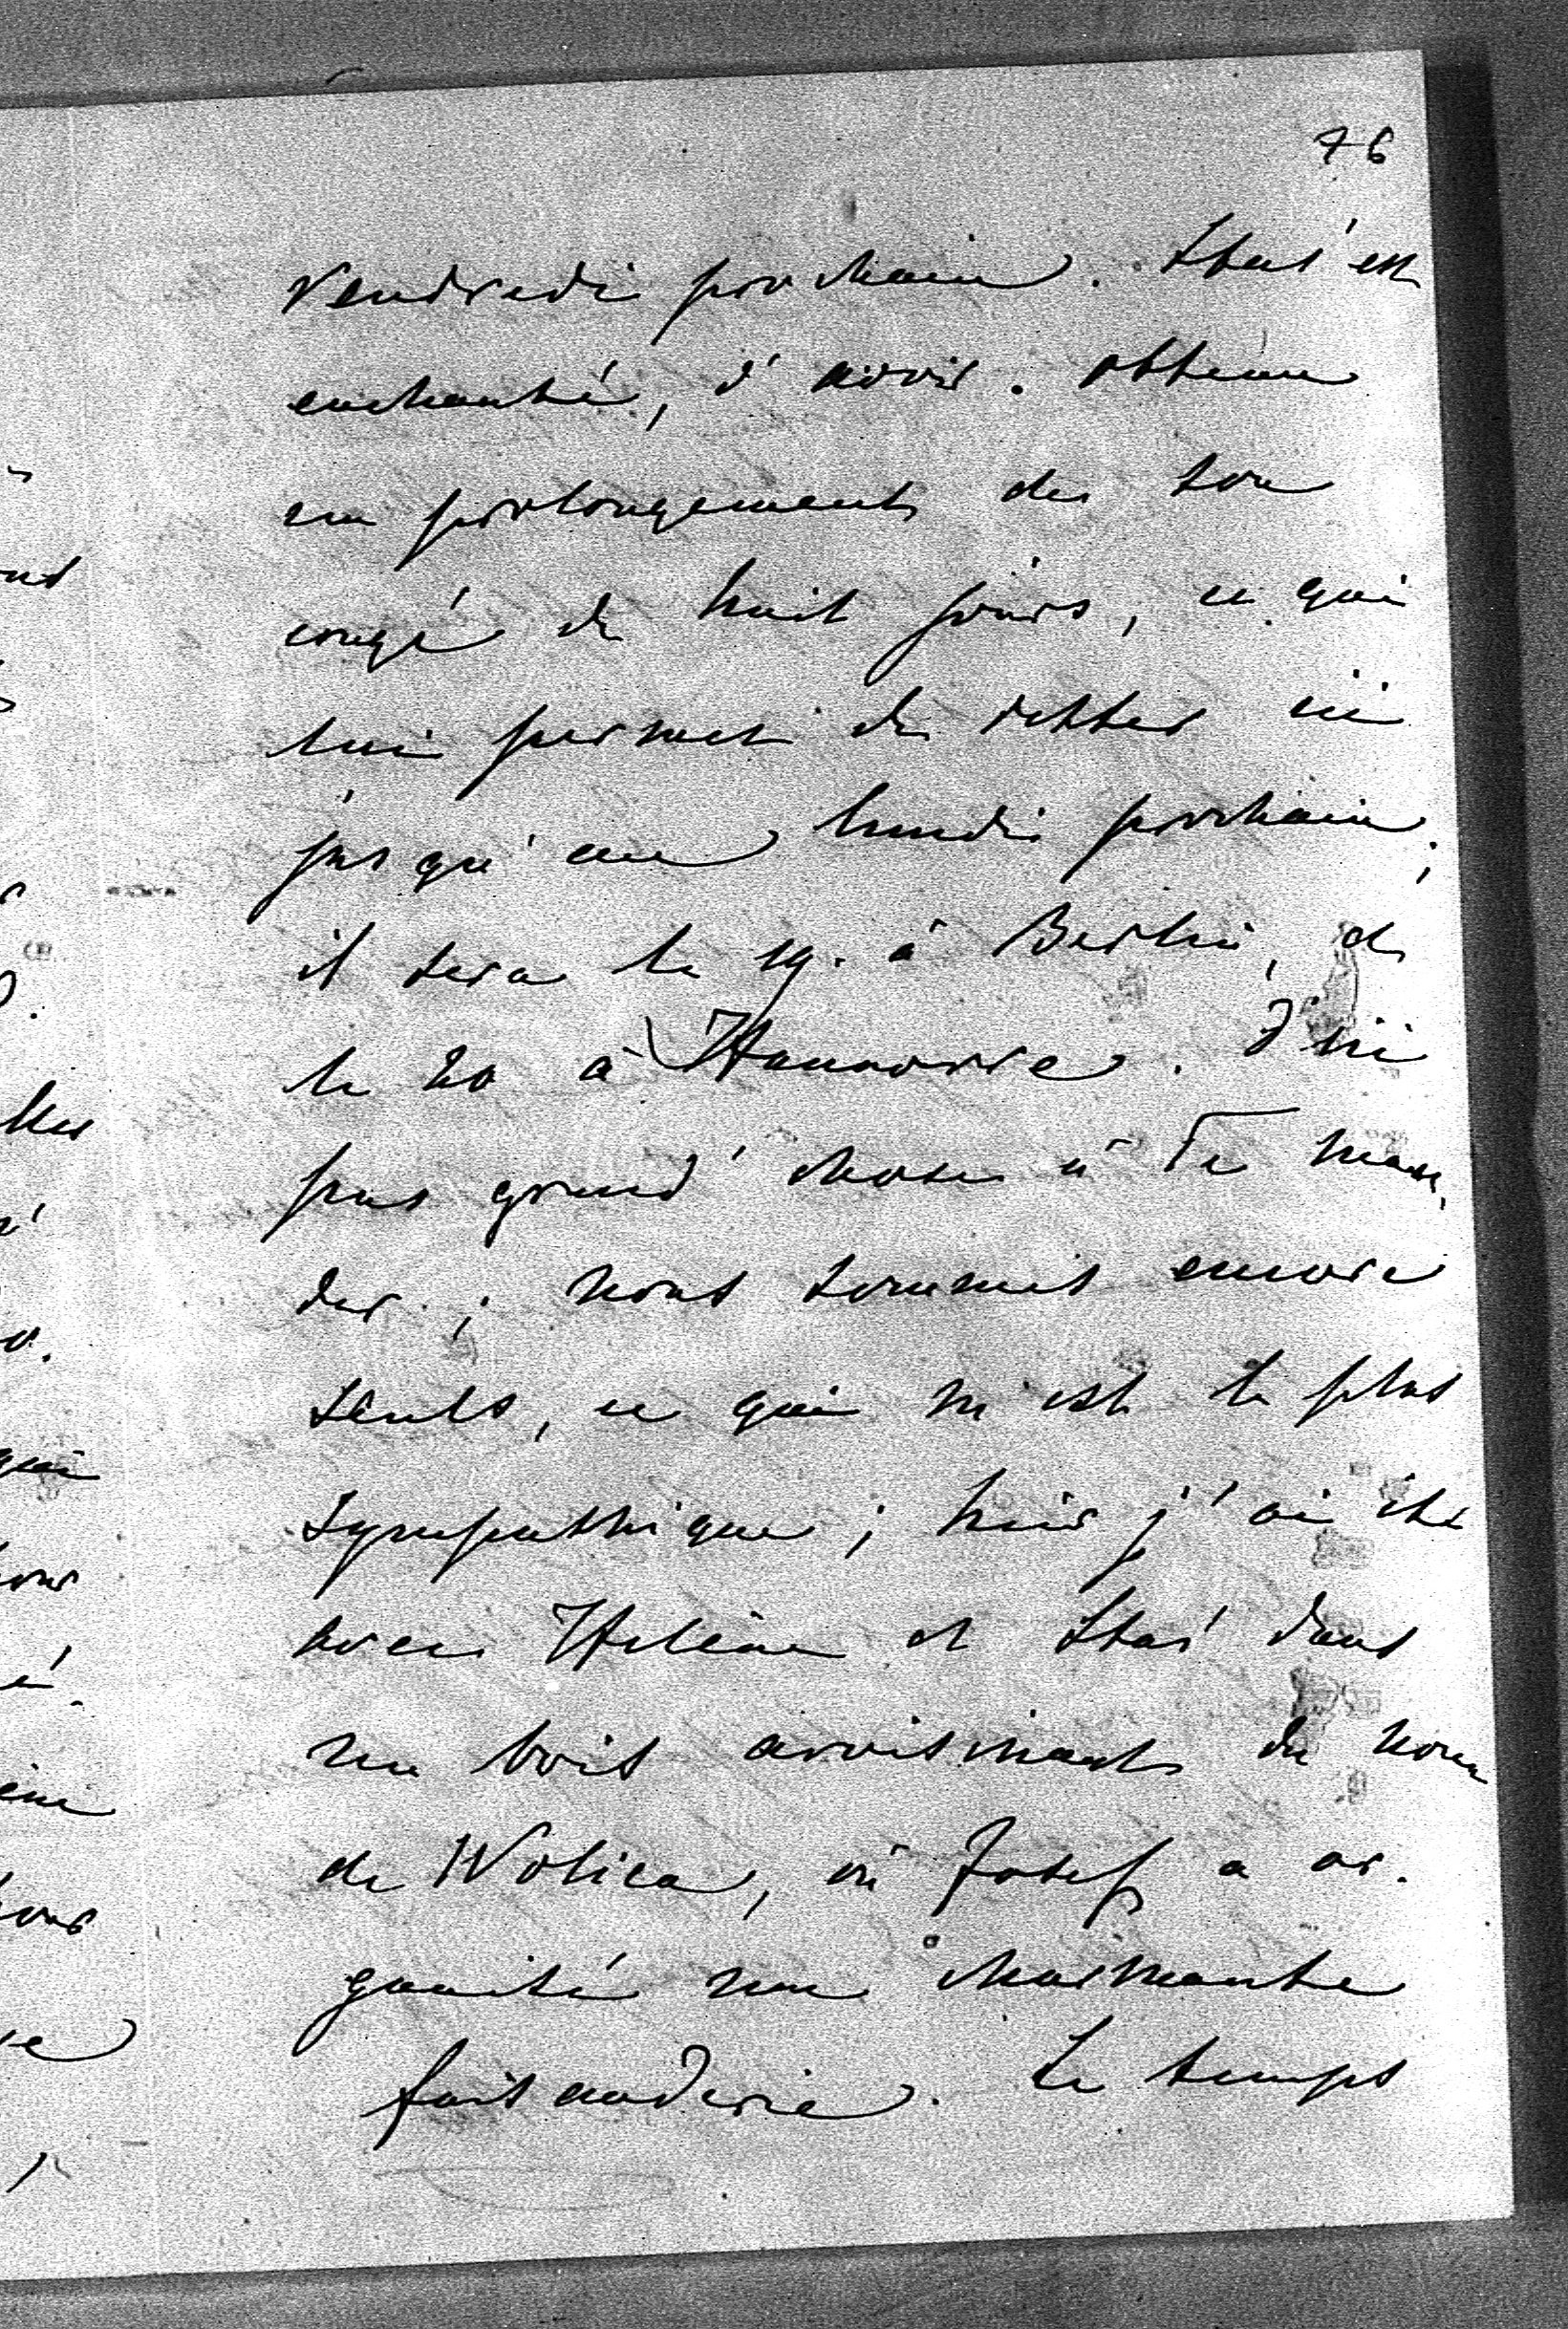 76
vendredi prochain. Stas' est
enchanté, d'avoir obtenu
un prolongement de son
congé de huit jours, ce qui
lui permet de rester ici
jusqu'au lundi prochain;
il sera le 19. à Berlin, et
le 20 à Hannovre. J'ai
pas grand' chose à Te man-
der; nous sommes encore
seuls, ce qui m'est le plus
sympathique; hier j'ai été
avec Helène et Stas' dans
un bois avoisinant du nom
de Wolica, où Josef a or-
ganisé une charmante
faisanderie. Le temps